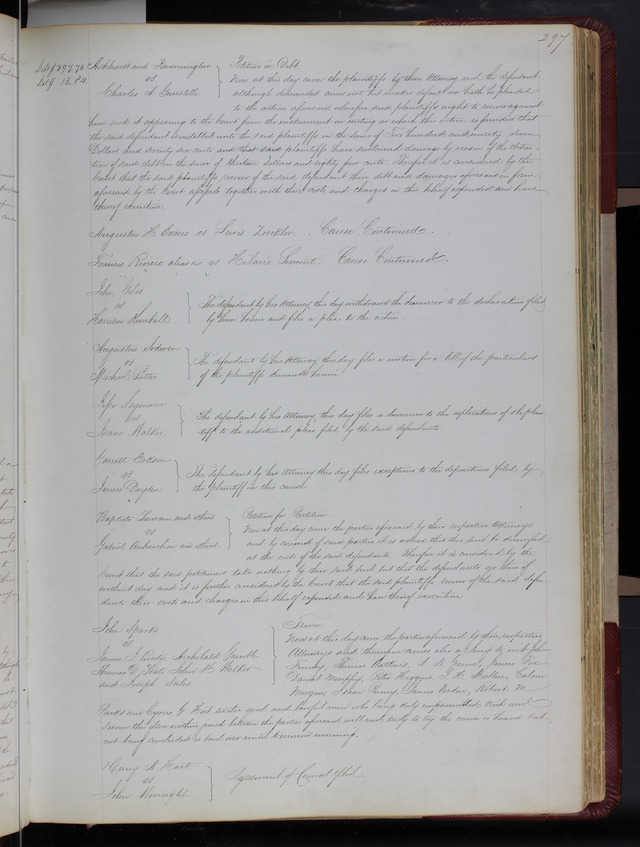 297
Debt $597.76
Dam $ 13.84
and
vs
Charles A
Petition in Debt
Now at this day came the plaintiffs by their Attorney and the defendant
although demanded comes not but makes default nor hath he pleaded
to the action aforesaid wherefore said plaintiffs ought to recover against
him and it appearing to the Court from the instrument in writing on which this action is founded that
the said defendant is indebted unto the said plaintiffs in the sum of Five hundred and ninety seven
Dollars and seventy six cents and that said plaintiffs have sustained damage by reason of the deten-
tion of said debt in the sum of thirteen Dollars and eighty four cents. Therefore it is considered by the
Court that the said plaintiffs recover of the said defendant their debt and damages aforesaid in form
aforesaid by the Court assessed together with their costs and charges in this behalf expended and have
thereof execution.
Augustus H. Evans vs Lewis Cause Continued.
Francis alias vs Hilaire Cause Continued.
John
vs
Harrison Kimball
The defendant by his Attorney this day withdraws the demurrer to the declaration filed
by him herein and files a plea to the action.
Augustus
vs
Michael Sutter
The defendant by his Attorney this day files a motion for a bill of the particulars
of the plaintiffs demand herein
Jeffe Seymour
vs
Isaac Walker
The defendant by his Attorney, this day files a demurrer to the replications of the plain-
tiff to the additional pleas filed by the said defendant.
Garrett
vs
James
The defendant by his Attorney this day files exceptions to the depositions filed by
the plaintiff in this cause
Baptiste and others
vs
Gabriel Aubuchon and others
Petition for Partition
Now at this day came the parties aforesaid by their respective Attorneys
and by consent of said parties it is ordered that this suit be dismissed
at the costs of the said defendants. Therefore it is considered by the
Court that the said petitioners take nothing by their said suit but that the defendants go thereof
without day and it is further considered by the Court that the said plaintiffs recover of the said defen-
dants their costs and charges in this behalf expended and have thereof execution
John Sparks
vs
James J. Purdy, Archibald Gamble
Thomas D. Yeats John H. Walker
and Joseph
Trover
Now at this day come the parties aforesaid by their respective
Attorneys and thereupon comes also a Jury to wit John
Thomas Watkins, James Fox
Daniel Murphy, Peter Higgins, Calvin
Morgan, Isaac James Robert M
Parks and Cyrus G. twelve good and lawful men who being duly empannelled, tried and
sworn the issue within joined between the parties aforesaid well and truly to try the cause is heard but
not being concluded is laid over until tomorrow morning.
Henry
vs
John
Agreement of Counsel filed